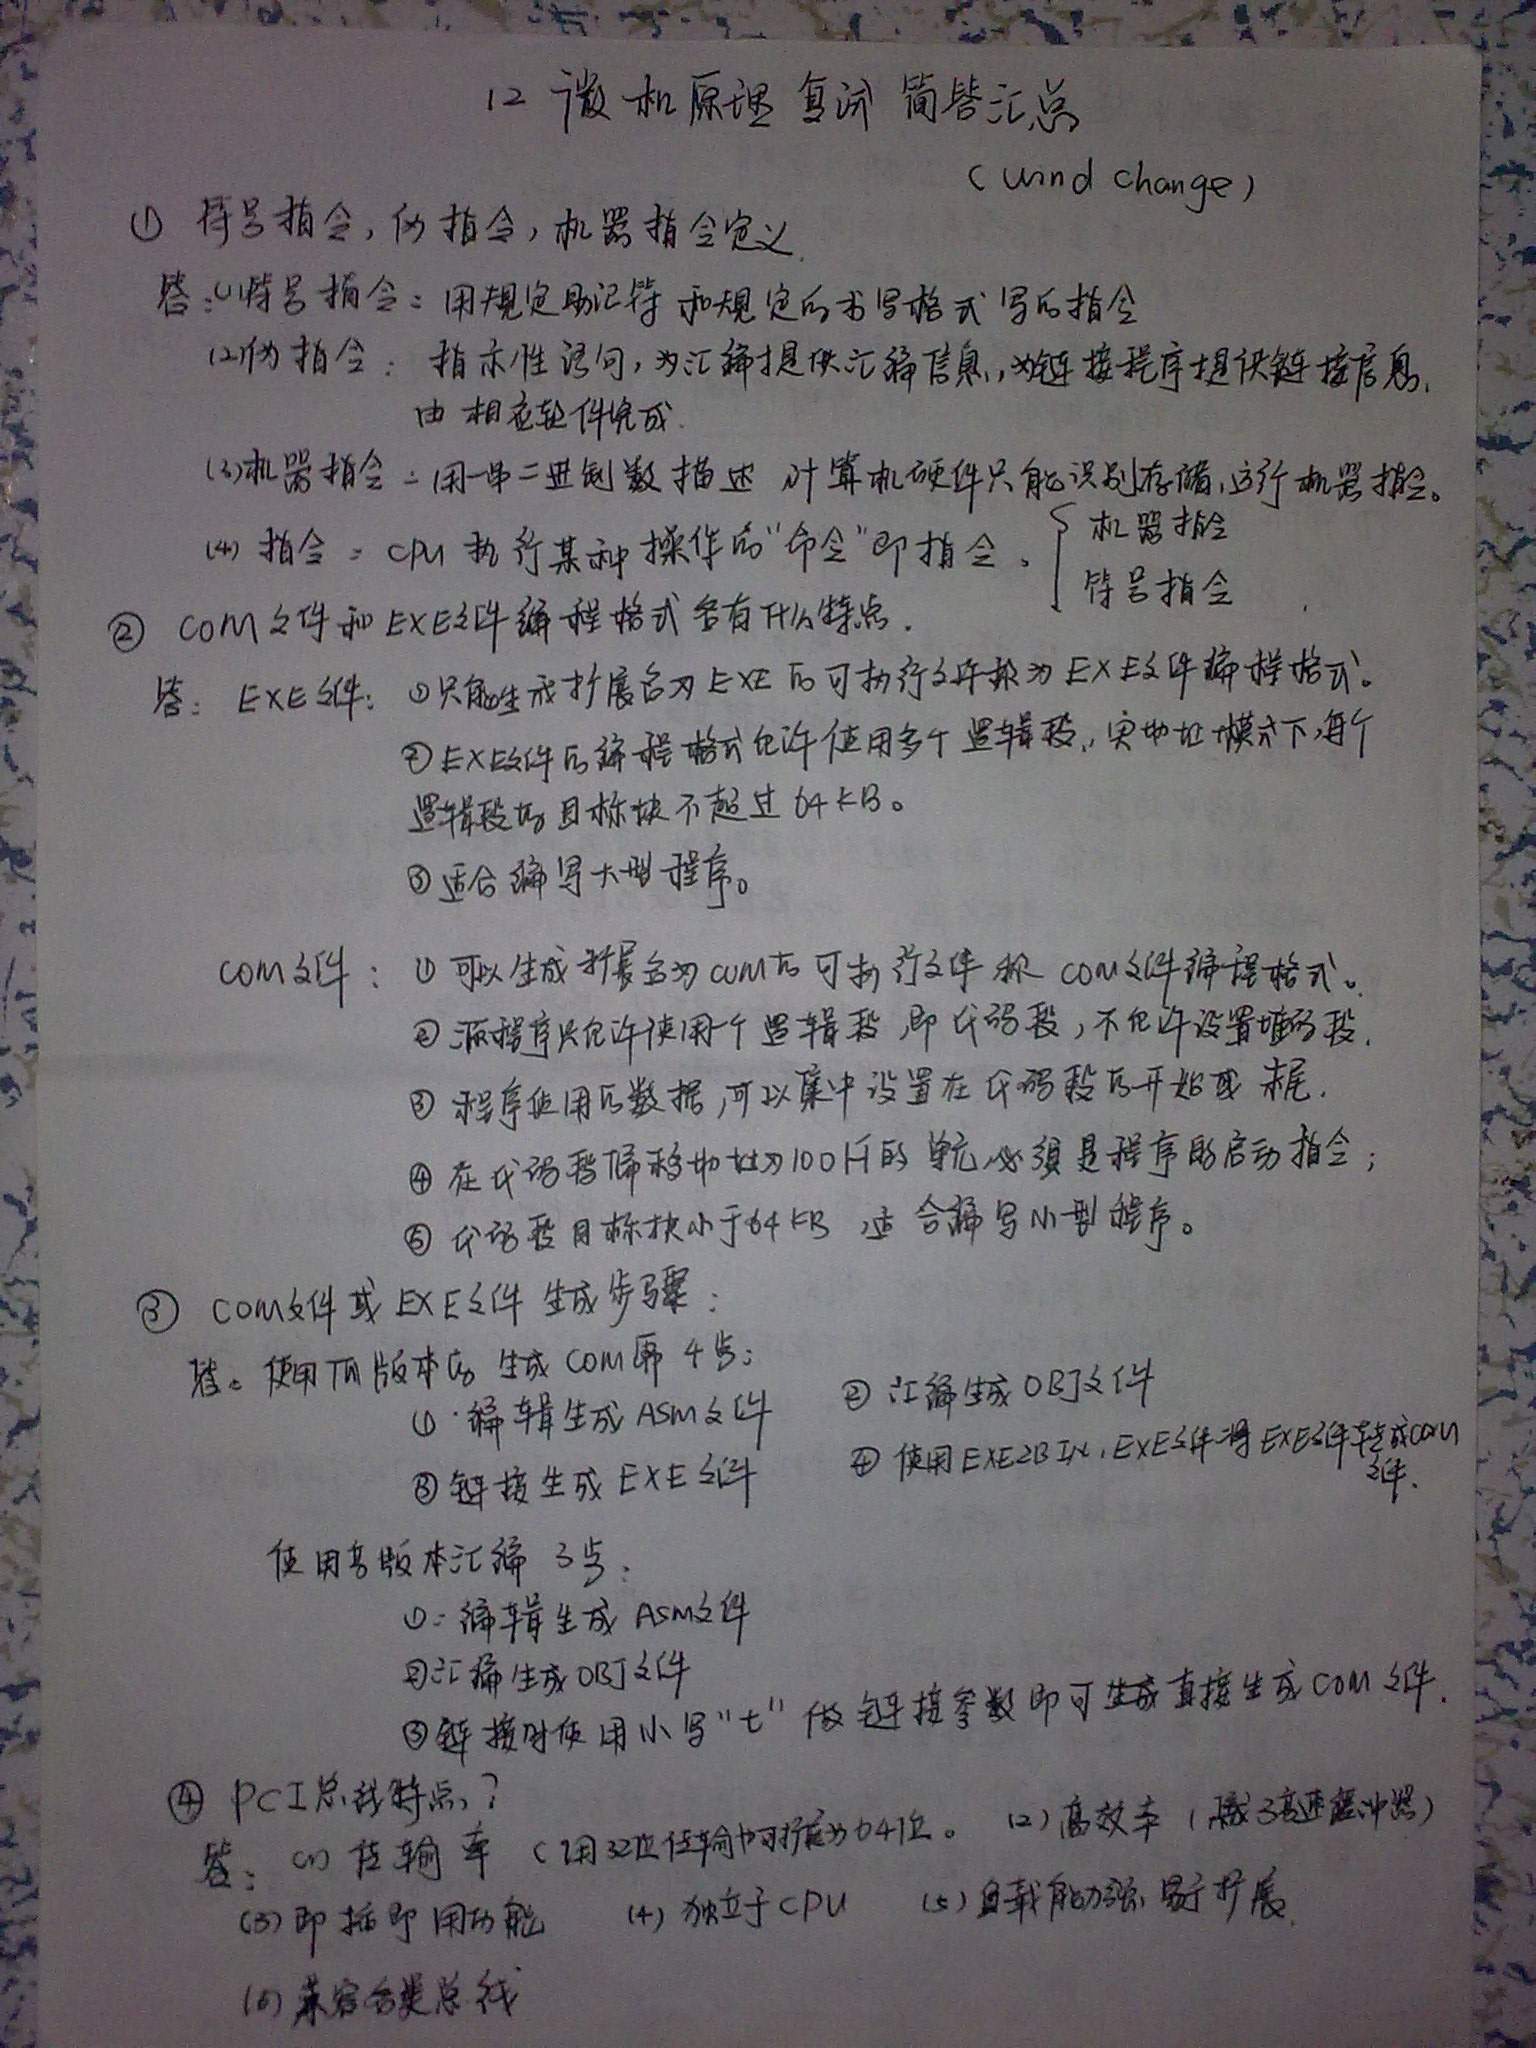 12 微机原理复试简答汇总
(wind change)
① 符号指令,伪指令,机器指令定义.
答:(1)符号指令:用规定助记符和规定的书写格式写的指令
(2)伪指令:指示性语句,为汇编提供汇编信息,为链接程序提供链接信息,
由相应软件完成.
(3)机器指令:用一串二进制数描述 计算机硬件只能识别存储,运行机器指令。
(4) 指令:CPU执行某种操作的"命令"即指令。{机器指令
符号指令
② COM文件和EXE文件编程格式各有什么特点.
答:EXE文件:①只能生成扩展名为EXE的可执行文件称为EXE文件编程格式。
②EXE文件的编程格式允许使用多个逻辑段,实地址模式下,每个
逻辑段的目标块不超过64KB。
③适合编写大型程序。
COM文件:①可以生成扩展名为COM的可执行文件称COM文件编程格式。
②源程序只允许使用一个逻辑段,即代码段,不允许设置堆码段.
③程序使用的数据,可以集中设置在代码段的开始或末尾.
④在代码段偏移地址为100H的单元必须是程序的启动指令;
⑤代码段目标块小于64KB,适合编写小型程序。
③ COM文件或EXE文件生成步骤:
答:使用 版本的生成COM需4步:
①·编辑生成ASM文件 ②汇编生成OBJ文件
③链接生成EXE文件 ④使用EXE2BIN.EXE文件将EXE文件转成COM
文件.
使用高版本汇编3步:
①:编辑生成ASM文件
②汇编生成OBJ文件
③链接时使用小写"t"做链接参数即可生成直接生成COM文件.
④ PCI总线特点?
答:(1)传输率(用32位传输也可扩展为64位。 (2)高效率( 了高速缓冲器)
(3)即插即用功能 (4)独立于CPU (5)负载能力强易于扩展.
(6)兼容各类总线